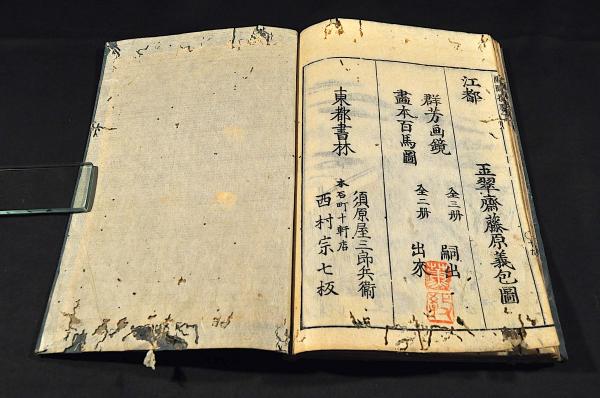 江都
玉翠齋藤原義包圖
群芳画鏡 全三册 嗣出
畫本百馬圖 全二册 出来
東都書林
須原屋三郎兵衛
本石町十軒店
西村宗七板